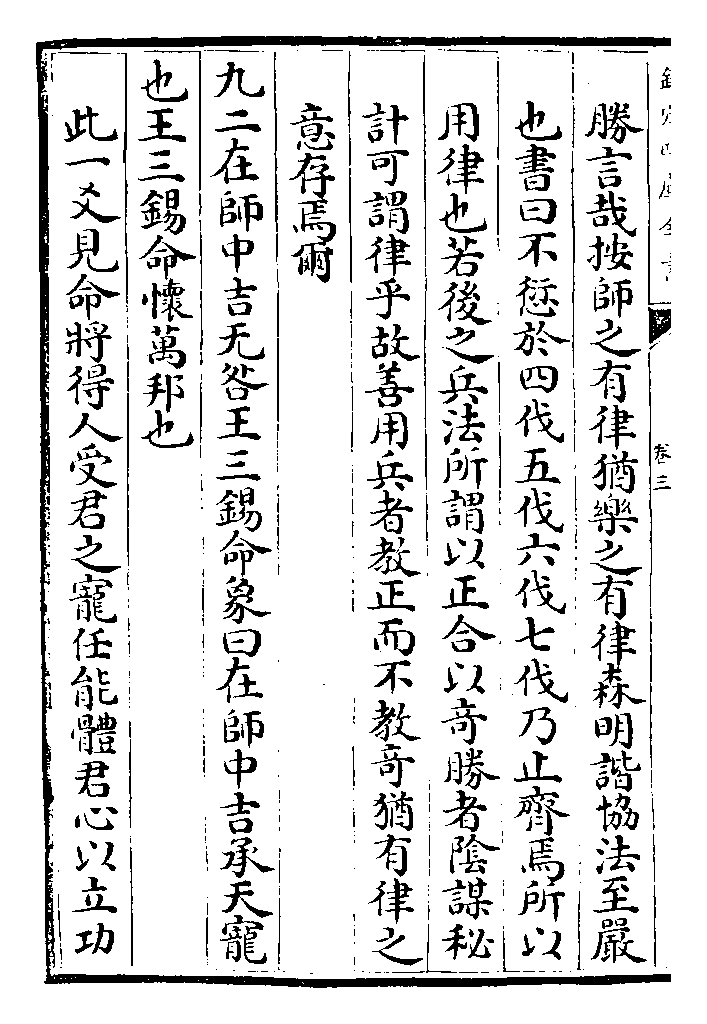 欽定四庫全書
卷三
勝言哉按師之有律猶樂之有律森明諧協法至嚴
也書曰不愆於四伐五伐六伐七伐乃止齊焉所以
用律也若後之兵法所謂以正合以奇勝者陰謀秘
計可謂律乎故善用兵者教正而不教奇猶有律之
意存焉爾
九二在師中吉无咎王三錫命象曰在師中吉承天寵
也王三錫命懷萬邦也
此一爻見命將得人受君之寵任能體君心以立功